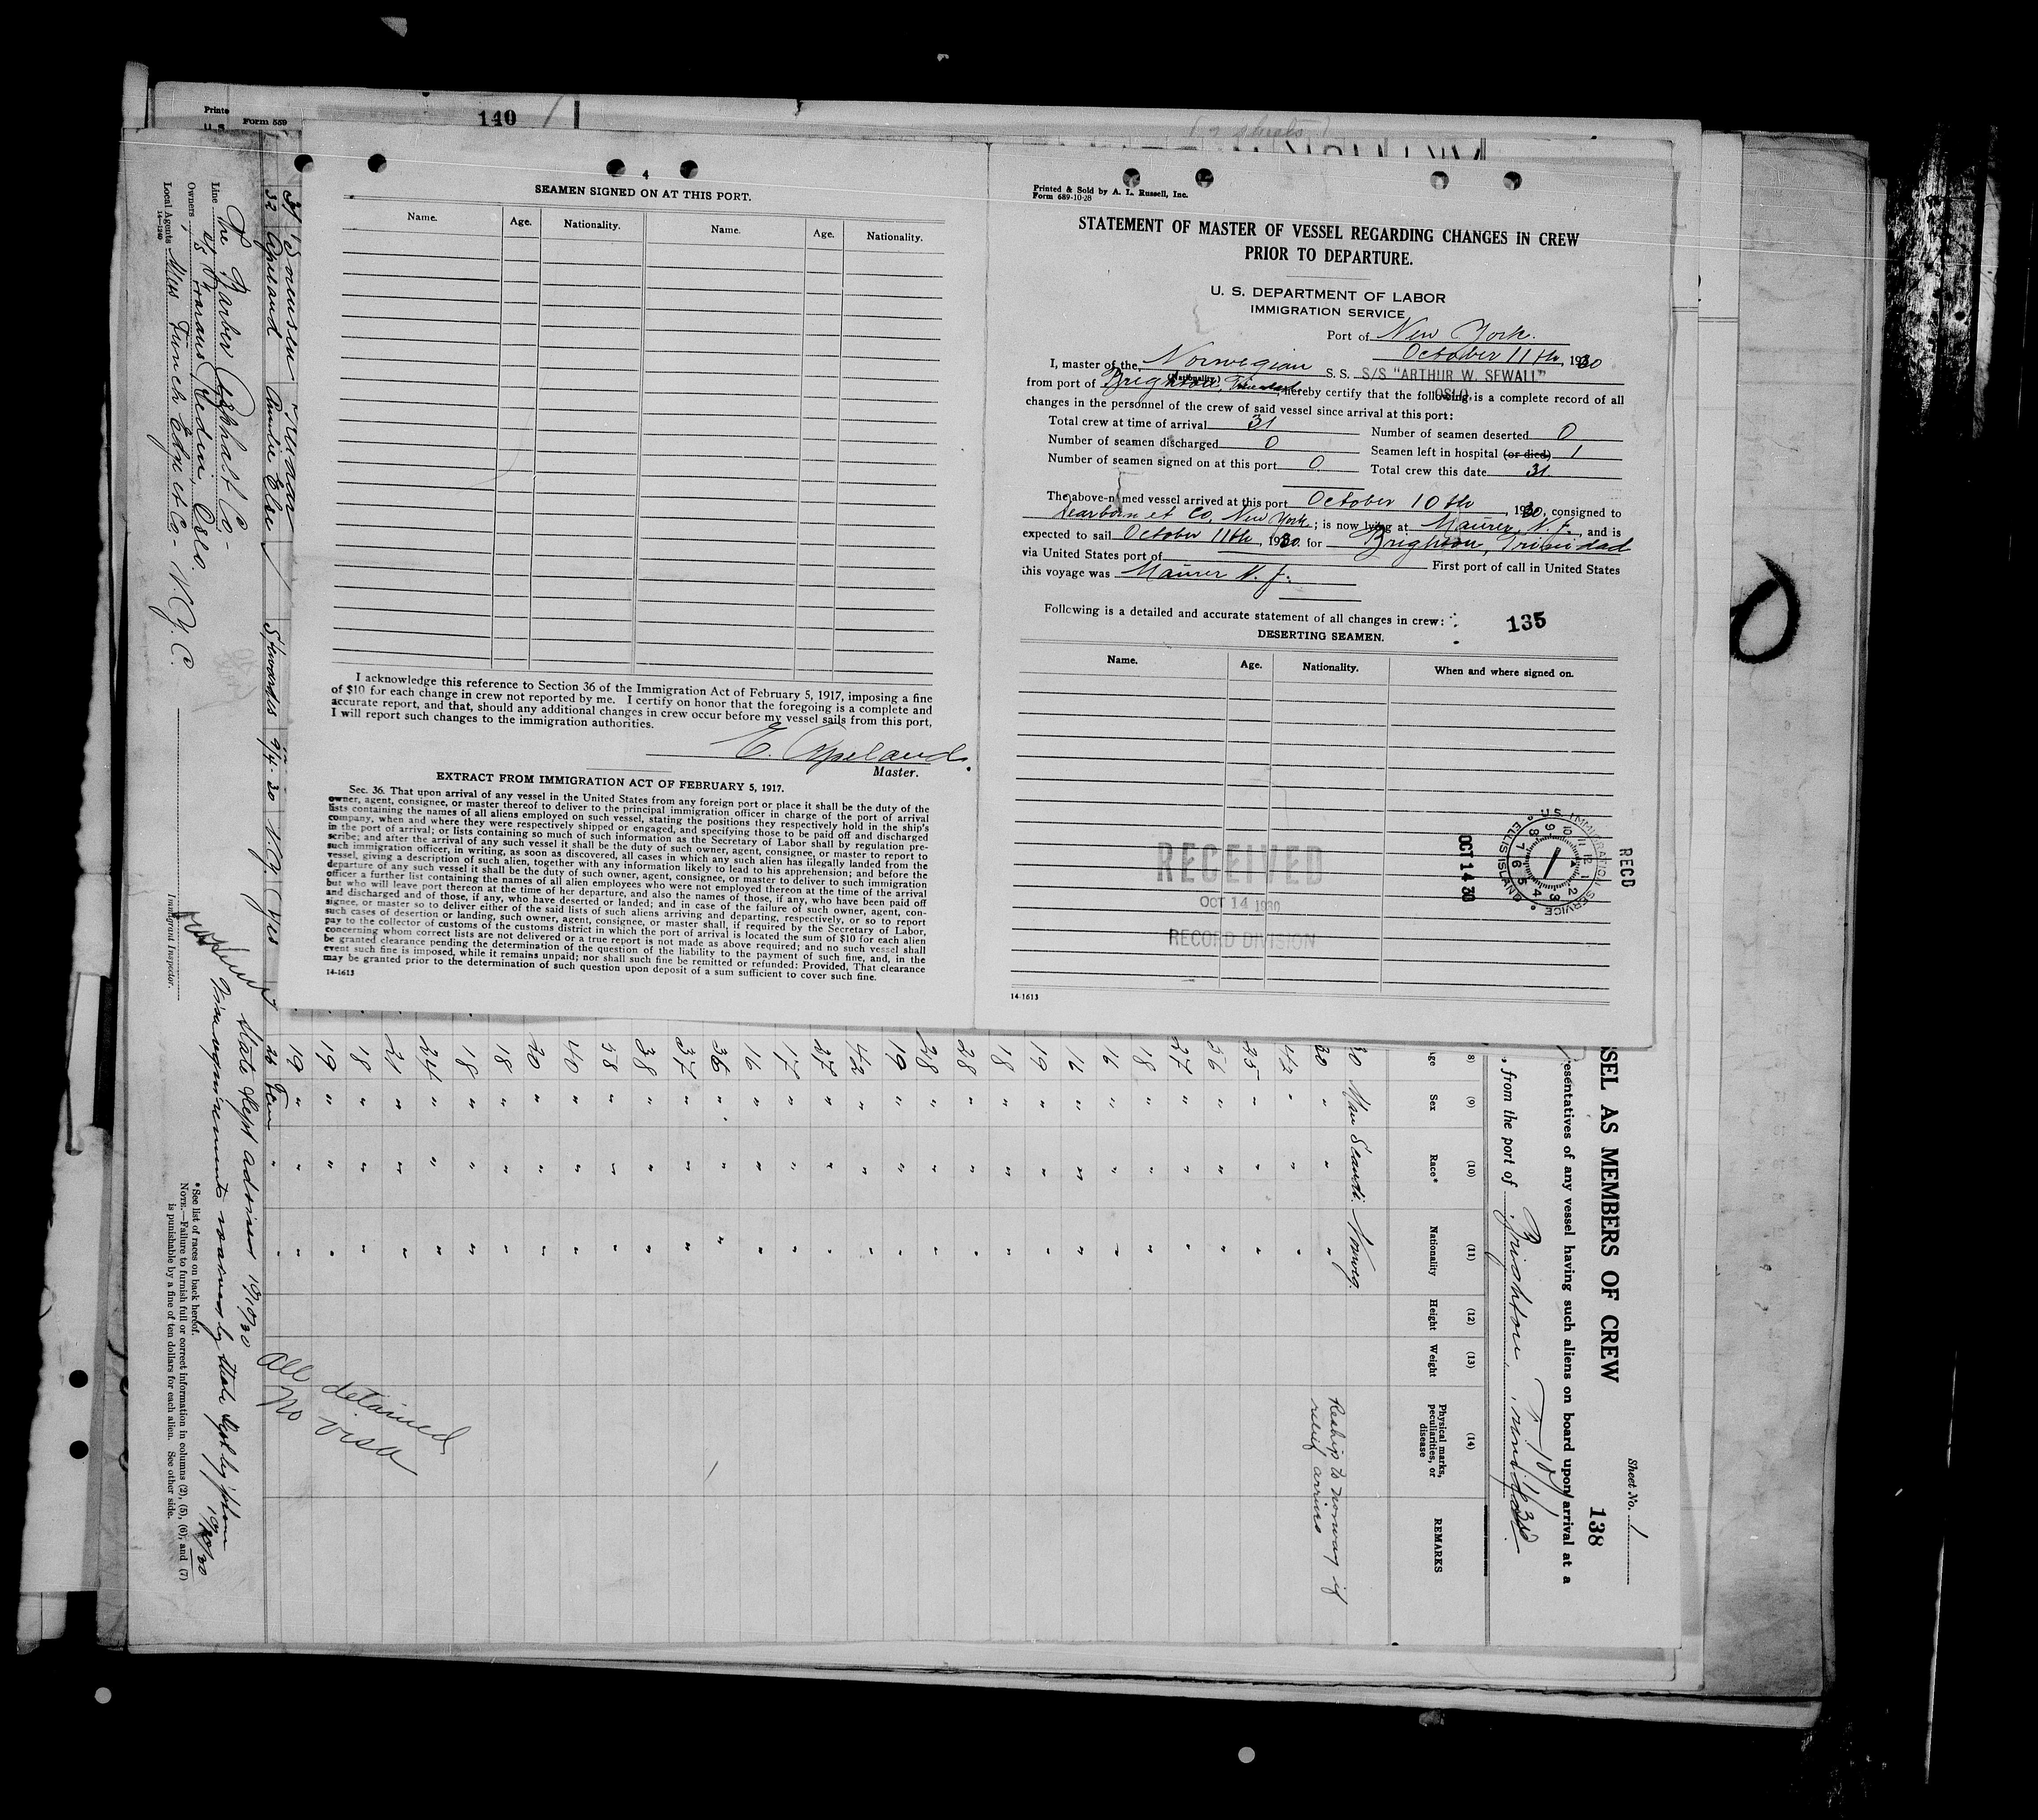 Printe
U. S.
Form 559
140
(2 sheets)
4
SEAMEN SIGNED ON AT THIS PORT.
Name. Age. Nationality. Name. Age. Nationality.
I acknowledge this reference to Section 36 of the Immigration Act of February 5, 1917, imposing a fine
of $10 for each change in crew not reported by me. I certify on honor that the foregoing is a complete and
accurate report, and that, should any additional changes in crew occur before my vessel sails from this port,
I will report such changes to the immigration authorities.
E. Apeland.
Master.
EXTRACT FROM IMMIGRATION ACT OF FEBRUARY 5, 1917.
Sec. 36. That upon arrival of any vessel in the United States from any foreign port or place it shall be the duty of the
owner, agent, consignee, or master thereof to deliver to the principal immigration officer in charge of the port of arrival
lists containing the names of all aliens employed on such vessel, stating the positions they respectively hold in the ship's
company, when and where they were respectively shipped or engaged, and specifying those to be paid off and discharged
in the port of arrival; or lists containing so much of such information as the Secretary of Labor shall by regulation pre-
scribe; and after the arrival of any such vessel it shall be the duty of such owner, agent, consignee, or master to report to
such immigration officer, in writing, as soon as discovered, all cases in which any such alien has illegally landed from the
vessel, giving a description of such alien, together with any information likely to lead to his apprehension; and before the
departure of any such vessel it shall be the duty of such owner, agent, consignee, or master to deliver to such immigration
officer a further list containing the names of all alien employees who were not employed thereon at the time of the arrival
but who will leave port thereon at the time of her departure, and also the names of those, if any, who have been paid off
and discharged and of those, if any, who have deserted or landed; and in case of the failure of such owner, agent, con-
signee, or master so to deliver either of the said lists of such aliens arriving and departing, respectively, or so to report
such cases of desertion or landing, such owner, agent, consignee, or master shall, if required by the Secretary of Labor,
pay to the collector of customs of the customs district in which the port of arrival is located the sum of $10 for each alien
concerning whom correct lists are not delivered or a true report is not made as above required; and no such vessel shall
be granted clearance pending the determination of the question of the liability to the payment of such fine, and, in the
event such fine is imposed, while it remains unpaid; nor shall such fine be remitted or refunded: Provided, That clearance
may be granted prior to the determination of such question upon deposit of a sum sufficient to cover such fine.
14-1613
Printed & Sold by A. L. Russell, Inc.
Form 689-10-28
STATEMENT OF MASTER OF VESSEL REGARDING CHANGES IN CREW
PRIOR TO DEPARTURE.
U. S. DEPARTMENT OF LABOR
IMMIGRATION SERVICE
Port of New York.
October 11th, 1930
I, master of the Norwegian S. S. S/S "ARTHUR W. SEWALL"
(Nationality)
OSLO.
from port of Brighton, Trinidad, hereby certify that the following is a complete record of all
changes in the personnel of the crew of said vessel since arrival at this port:
Total crew at time of arrival 31 Number of seamen deserted 0
Number of seamen discharged 0 Seamen left in hospital (or died) 1
Number of seamen signed on at this port 0 Total crew this date 31
The above-named vessel arrived at this port October 10th, 1930, consigned to
Dearborn et Co, New York; is now lying at Maurer, N. J., and is
expected to sail October 11th, 1930 for Brighton, Trinidad
via United States port of First port of call in United States
this voyage was Maurer N. J.
Following is a detailed and accurate statement of all changes in crew:
135
DESERTING SEAMEN.
Name. Age. Nationality. When and where signed on.
RECEIVED
OCT 14 1930
RECORD DIVISION
OCT 14 30
U S IMMIGRATION SERVICE ELLIS ISLAND
12 1 2 3 4 5 6 7 8 9 10 11
RECD
14-1613
Sheet No. 1
138
SSEL AS MEMBERS OF CREW
resentatives of any vessel having such aliens on board upon arrival at a
, from the port of Brighton, Trinidad.
(8) (9) (10) (11) (12) (13) (14)
Age Sex Race* Nationality Height Weight Physical marks, peculiarities, or disease REMARKS
30 Man Scandi Norweg.
30 " " " Reship to Norway if
relief arrives
43 " " "
25 " " "
36 " " "
27 " " "
18 " " "
16 " " "
16 " " "
19 " " "
18 " " "
28 " " "
28 " " "
19 " " "
42 " " "
27 " " "
17 " " "
16 " " "
36 " " "
37 " " "
38 " " "
58 " " "
40 " " "
20 " " "
18 " " "
18 " " "
24 " " "
21 " " "
18 " " "
19 " " "
31 Tonnesen Gunnar 19 " " "
32 Apeland Amalie Else Stewardess 9/4.30 N.Y. Yes 26 Fem " "
All detained
No visa
State Dept advises 10/10/30
Visa requirements waived by State Dept by phone 10/10/30
Line The Barber Asphalt Co.-
Owners Transus Hedin, Oslo.
Local Agents Mess Funch Edye et Co - N.Y.C.
14-1240
Immigrant Inspector.
*See list of races on back hereof.
NOTE.—Failure to furnish full or correct information in columns (2), (5), (6), and (7)
is punishable by a fine of ten dollars for each alien. See other side.